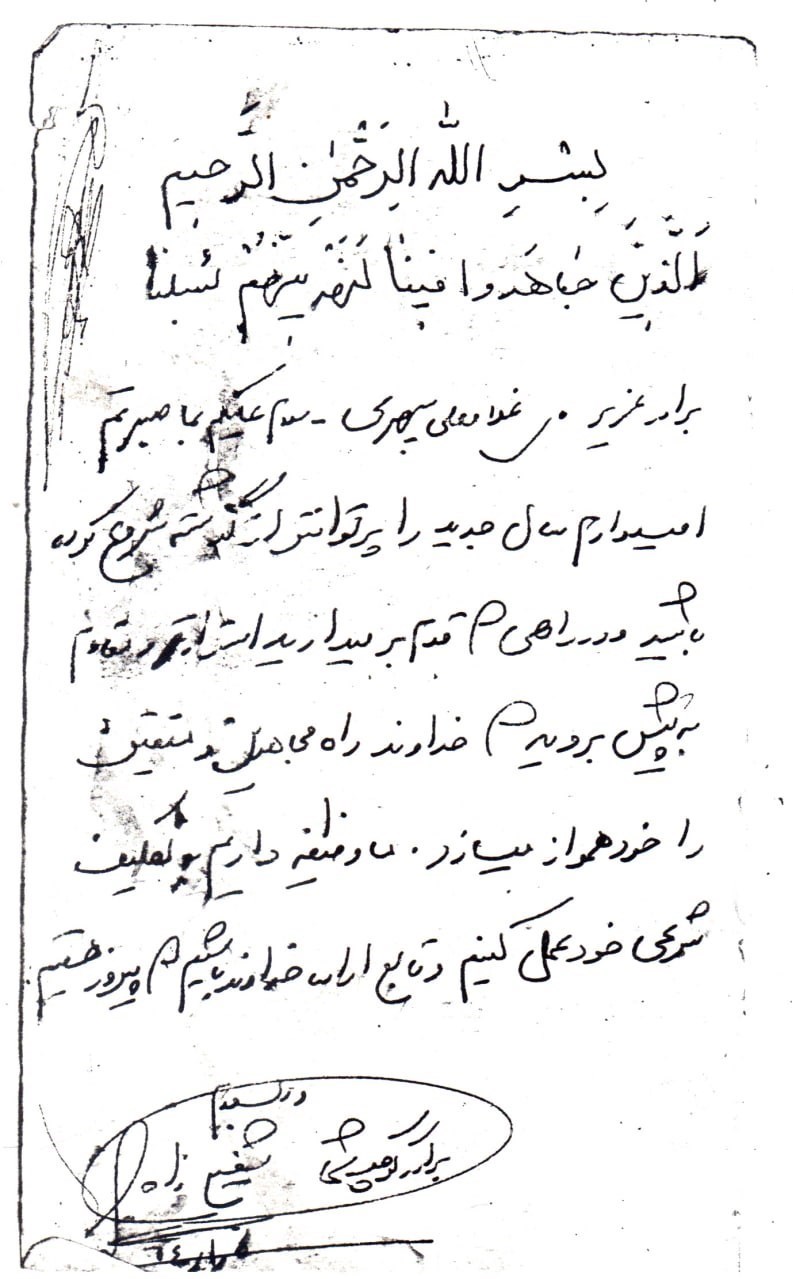 بِسْمِ اللّٰهِ الرَّحْمٰنِ الرَّحیمِ
وَالَّذینَ جٰاهَدوا فینٰا لَنَهْدِیَنَّهُمْ سُبُلَنٰا
برادر عزیزم غلامعلی سپهری - سلام علیکم بما صبرتم
امیدوارم سال جدید را پرتوانتر از گذشته شروع کرده
باشید و در راهی که قدم بر میدارید استوارتر و مقاوم
به پیش بروید که خداوند راه مجاهدین و متقین
را خود هموار میسازد. ما وظیفه داریم به تکلیف
شرعی خود عمل کنیم و تابع اراده خداوند باشیم که پیروز هستیم
برادر کوچک شما شفیع زاده